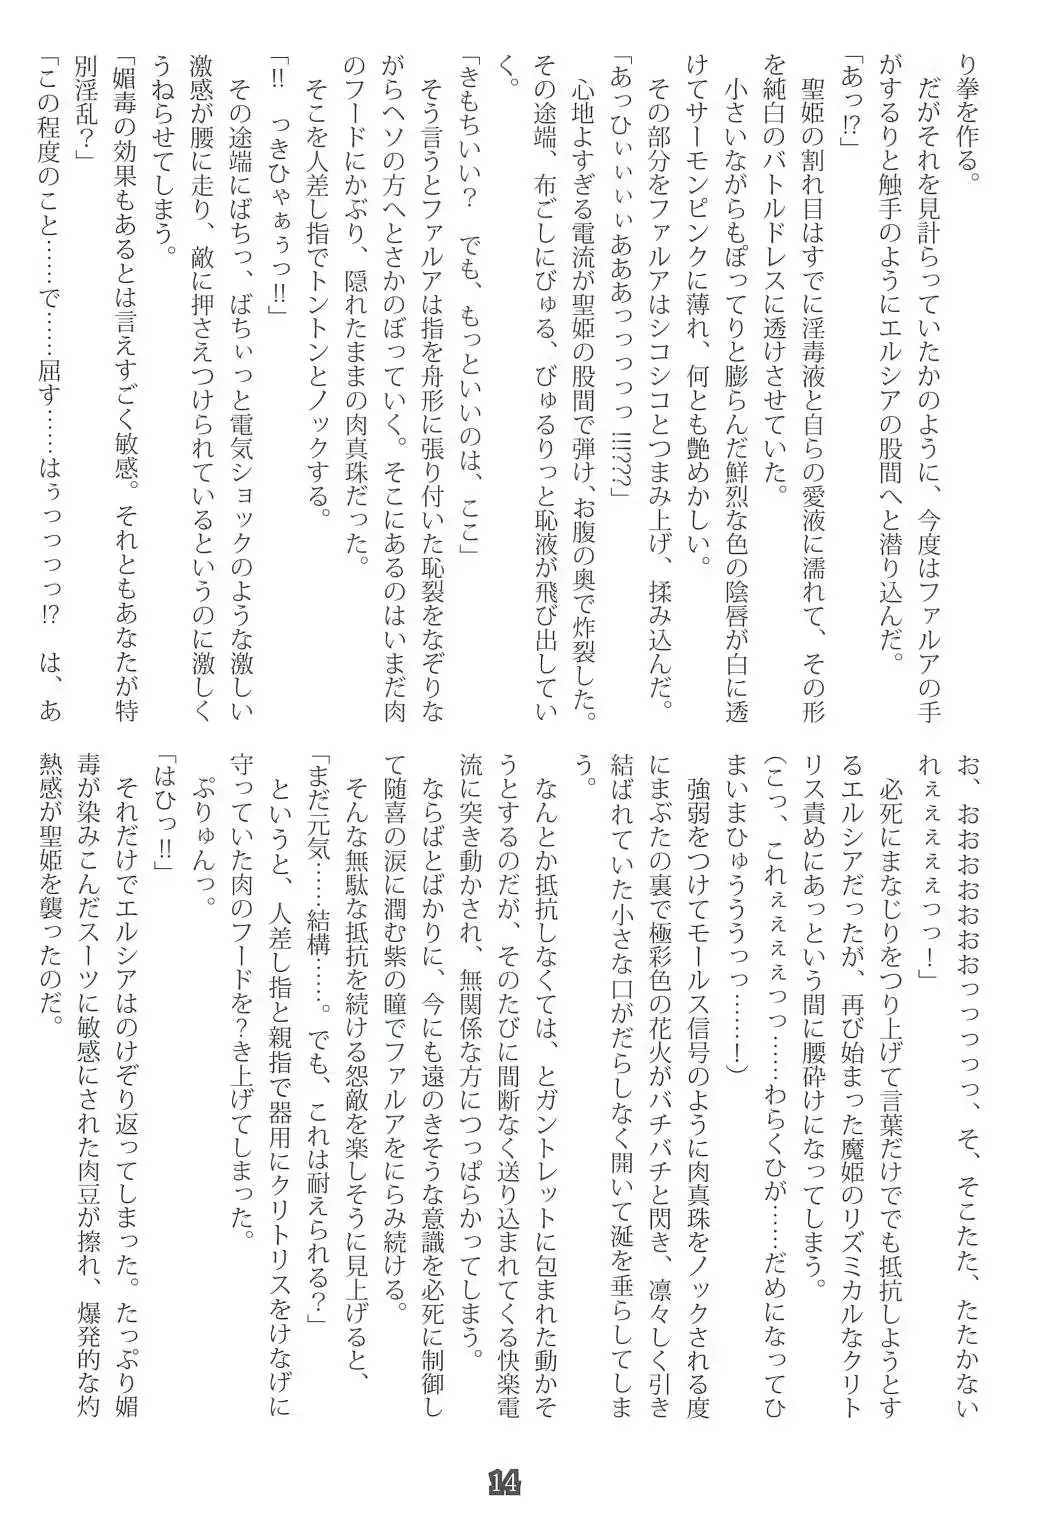 り拳を作る。
だがそれを見計らっていたかのように、今度はファルアの手
がするりと触手のようにエルシアの股間へと潜り込んだ。
「あっ!?」
聖姫の割れ目はすでに淫毒液と自らの愛液に濡れて、その形
を純白のバトルドレスに透けさせていた。
小さいながらもぽってりと膨らんだ鮮烈な色の陰唇が白に透
けてサーモンピンクに薄れ、何とも艶めかしい。
その部分をファルアはシコシコとつまみ上げ、揉み込んだ。
「あっひぃぃぃぃあああっっっっ!!!???」
心地よすぎる電流が聖姫の股間で弾け、お腹の奥で炸裂した。
その途端、布ごしにびゅる、びゅるりっと恥液が飛び出してい
く。
「きもちいい?　でも、もっといいのは、ここ」
そう言うとファルアは指を舟形に張り付いた恥裂をなぞりな
がらヘソの方へとさかのぼっていく。そこにあるのはいまだ肉
のフードにかぶり、隠れたままの肉真珠だった。
そこを人差し指でトントンとノックする。
「!!　っきひゃぁぅっ!!」
その途端にばちっ、ばちぃっと電気ショックのような激しい
激感が腰に走り、敵に押さえつけられているというのに激しく
うねらせてしまう。
「媚毒の効果もあるとは言えすごく敏感。それともあなたが特
別淫乱?」
「この程度のこと……で……屈す……はぅっっっっ!?　は、あ
お、おおおおおおおっっっっっ、そ、そこたた、たたかない
れぇぇぇぇぇっっ!」
必死にまなじりをつり上げて言葉だけででも抵抗しようとす
るエルシアだったが、再び始まった魔姫のリズミカルなクリト
リス責めにあっという間に腰砕けになってしまう。
(こっ、これぇぇぇぇっっ……わらくひが……だめになってひ
まいまひゅうううっっ………!)
強弱をつけてモールス信号のように肉真珠をノックされる度
にまぶたの裏で極彩色の花火がバチバチと閃き、凛々しく引き
結ばれていた小さな口がだらしなく開いて涎を垂らしてしま
う。
なんとか抵抗しなくては、とガントレットに包まれた動かそ
うとするのだが、そのたびに間断なく送り込まれてくる快楽電
流に突き動かされ、無関係な方につっぱらかってしまう。
ならばとばかりに、今にも遠のきそうな意識を必死に制御し
て随喜の涙に潤む紫の瞳でファルアをにらみ続ける。
そんな無駄な抵抗を続ける怨敵を楽しそうに見上げると、
「まだ元気……結構……。でも、これは耐えられる?」
というと、人差し指と親指で器用にクリトリスをけなげに
守っていた肉のフードを?き上げてしまった。
ぷりゅんっ。
「はひっ!!」
それだけでエルシアはのけぞり返ってしまった。たっぷり媚
毒が染みこんだスーツに敏感にされた肉豆が擦れ、爆発的な灼
熱感が聖姫を襲ったのだ。
14